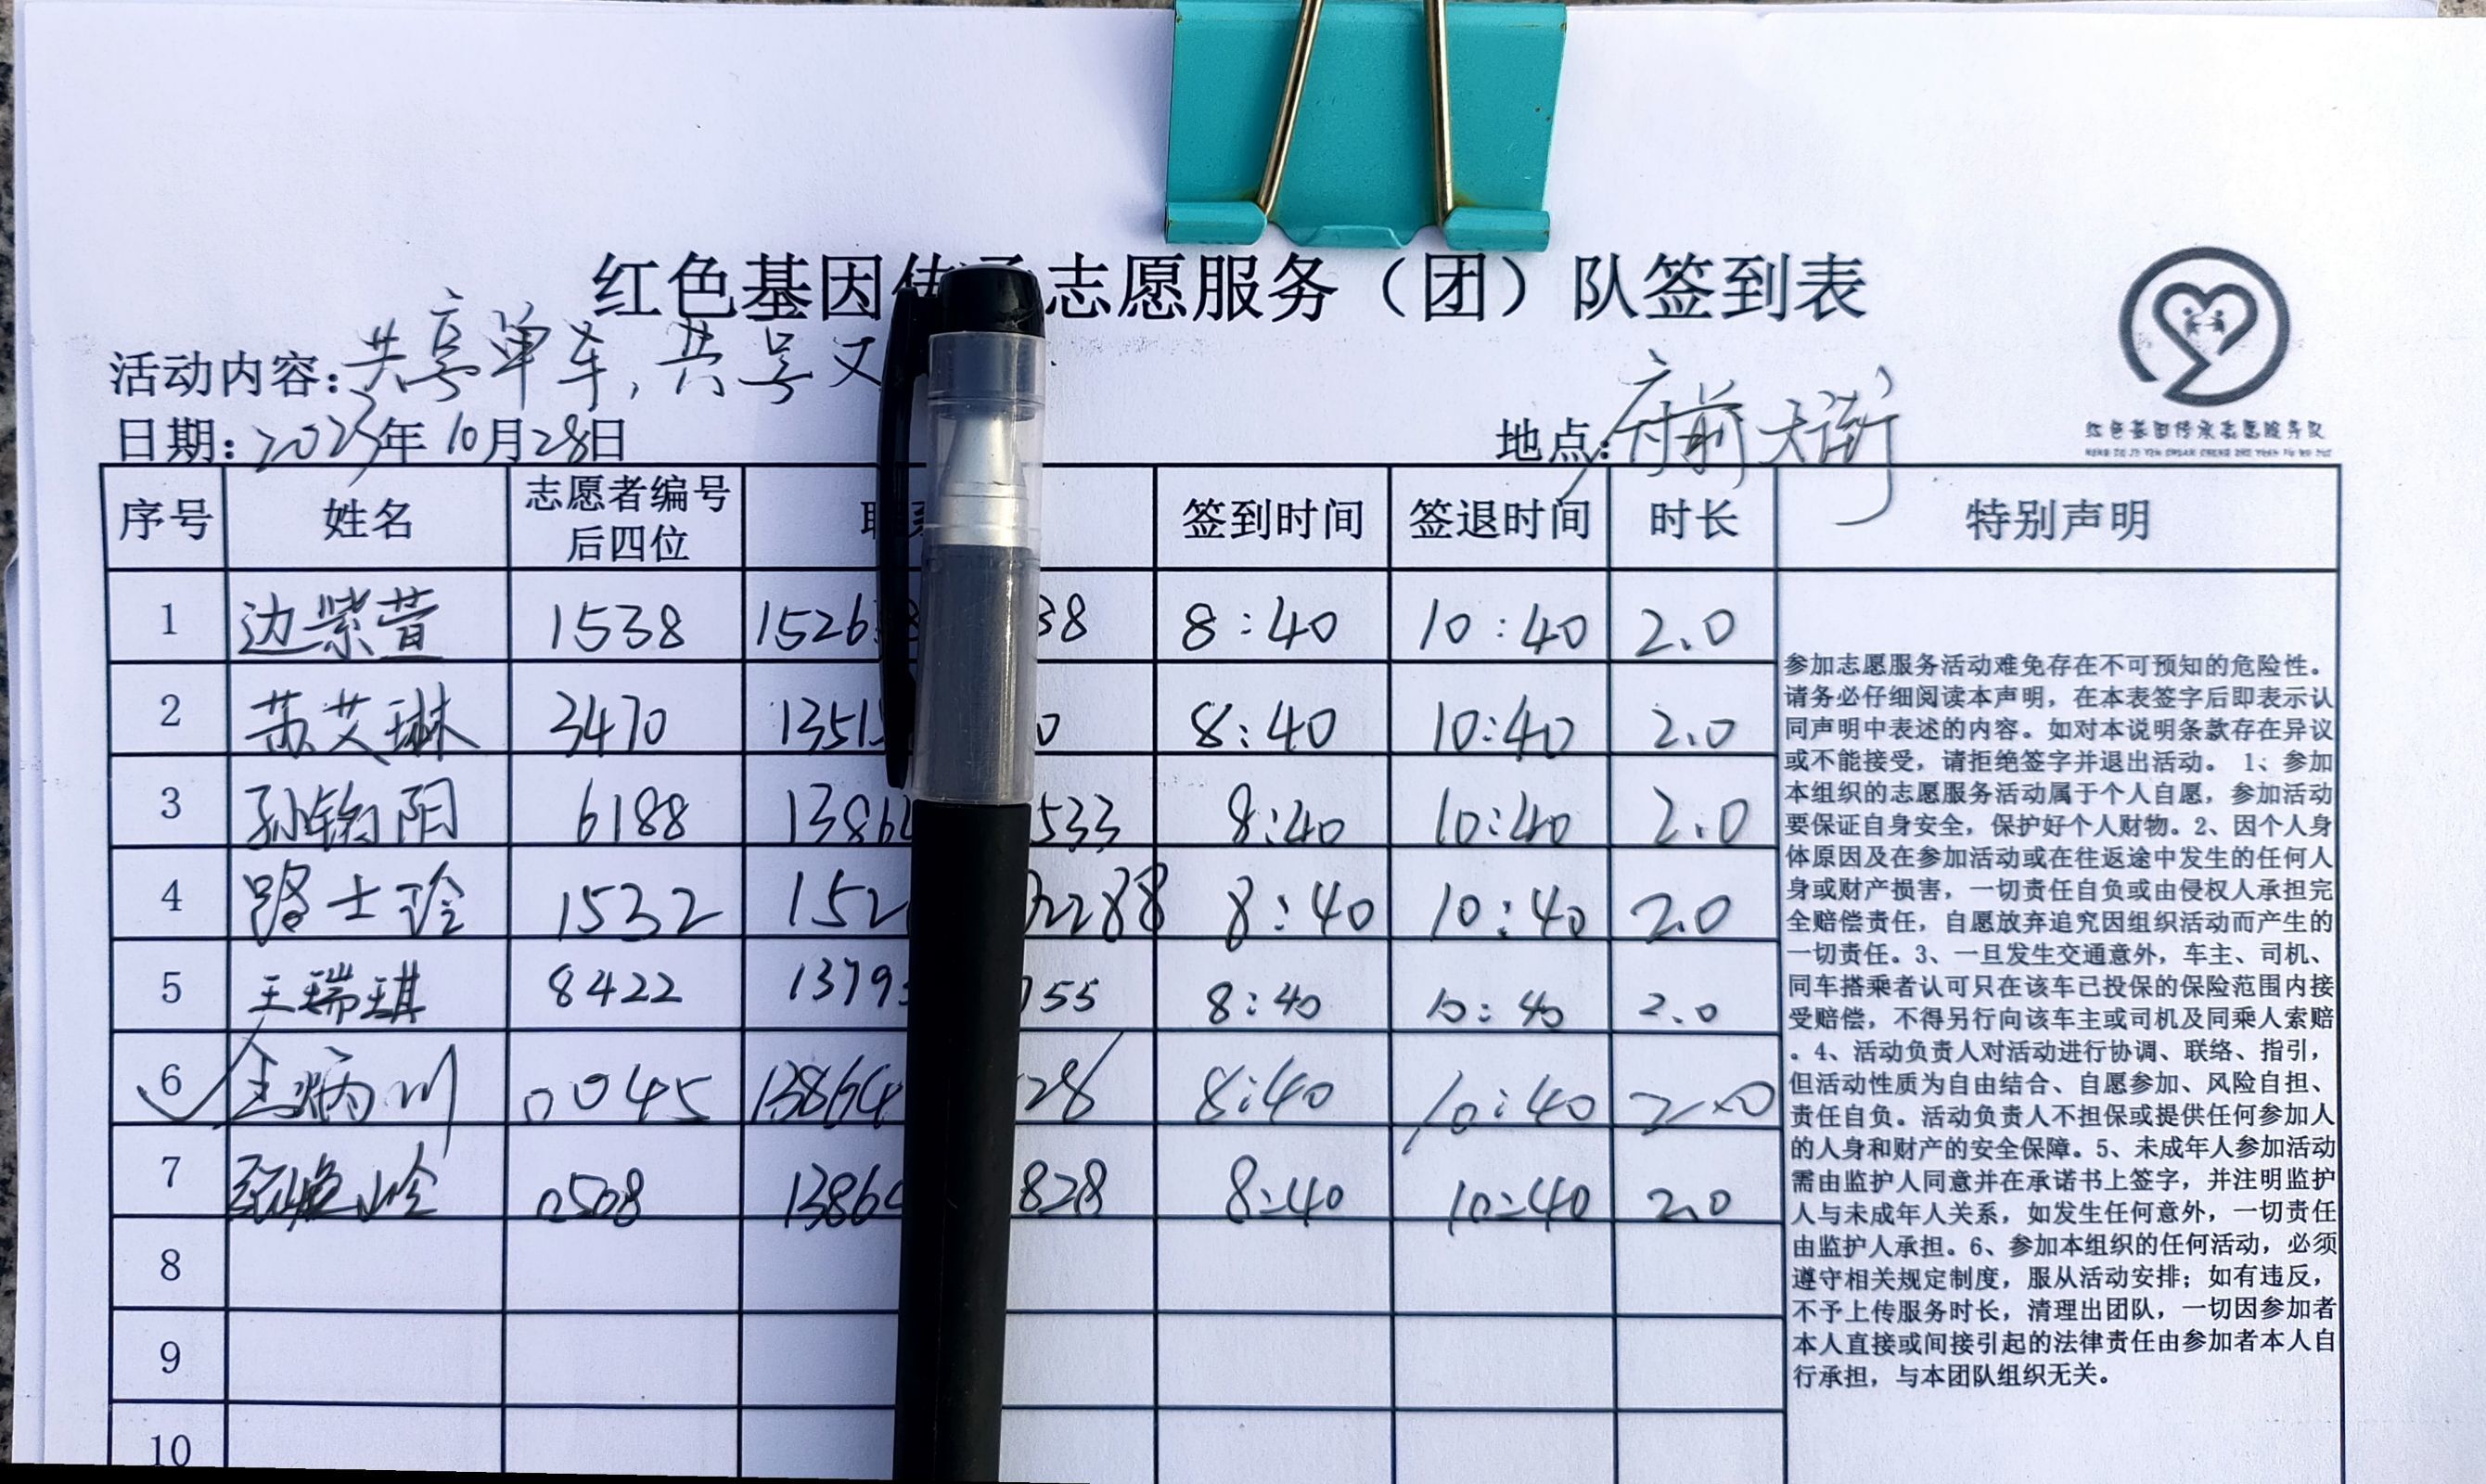 红色基因传承志愿服务（团）队签到表
活动内容：共享单车，共享文
日期：2023年10月28日 地点：府前大街
红色基因传承志愿服务队
序号 姓名 志愿者编号后四位 联系 签到时间 签退时间 时长 特别声明
1 边紫萱 1538 1526 38 8:40 10:40 2.0
2 苏艾琳 3470 1351 0 8:40 10:40 2.0
3 孙铭阳 6188 1386 533 8:40 10:40 2.0
4 路士玲 1532 152 2288 8:40 10:40 2.0
5 王瑞琪 8422 1379 755 8:40 10:40 2.0
6 0045 13864 28 8:40 10:40 2.0
7 0508 1386 828 8:40 10:40 2.0
8
9
10
参加志愿服务活动难免存在不可预知的危险性。
请务必仔细阅读本声明，在本表签字后即表示认
同声明中表述的内容。如对本说明条款存在异议
或不能接受，请拒绝签字并退出活动。 1、参加
本组织的志愿服务活动属于个人自愿，参加活动
要保证自身安全，保护好个人财物。2、因个人身
体原因及在参加活动或在往返途中发生的任何人
身或财产损害，一切责任自负或由侵权人承担完
全赔偿责任，自愿放弃追究因组织活动而产生的
一切责任。3、一旦发生交通意外，车主、司机、
同车搭乘者认可只在该车已投保的保险范围内接
受赔偿，不得另行向该车主或司机及同乘人索赔
。4、活动负责人对活动进行协调、联络、指引，
但活动性质为自由结合、自愿参加、风险自担、
责任自负。活动负责人不担保或提供任何参加人
的人身和财产的安全保障。5、未成年人参加活动
需由监护人同意并在承诺书上签字，并注明监护
人与未成年人关系，如发生任何意外，一切责任
由监护人承担。6、参加本组织的任何活动，必须
遵守相关规定制度，服从活动安排；如有违反，
不予上传服务时长，清理出团队，一切因参加者
本人直接或间接引起的法律责任由参加者本人自
行承担，与本团队组织无关。